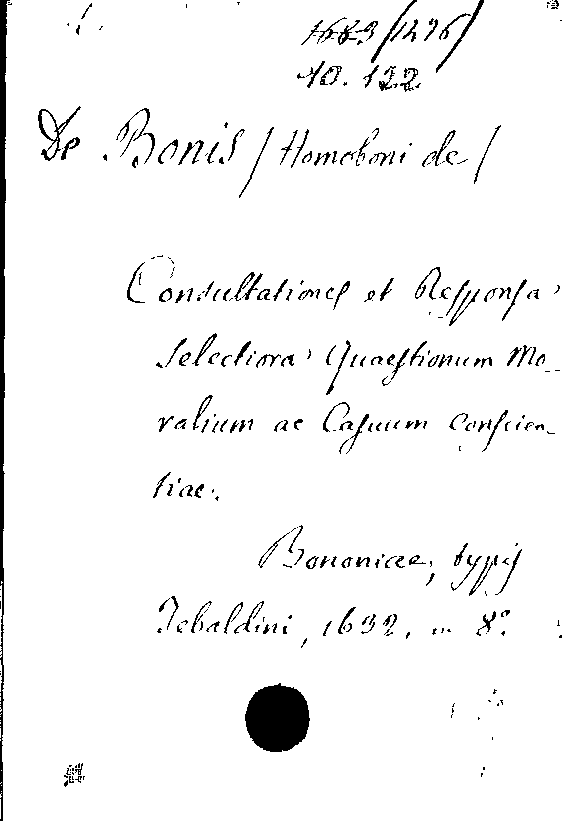 1683/1296/
10. 122
De Bonis / Homoboni de /
Consultationes et Responsa
Selectiora Quaestionum Mo-
ralium ac Casuum conscien-
tiae.
Bononiae, typis
Tebaldini, 1632. in 8°.